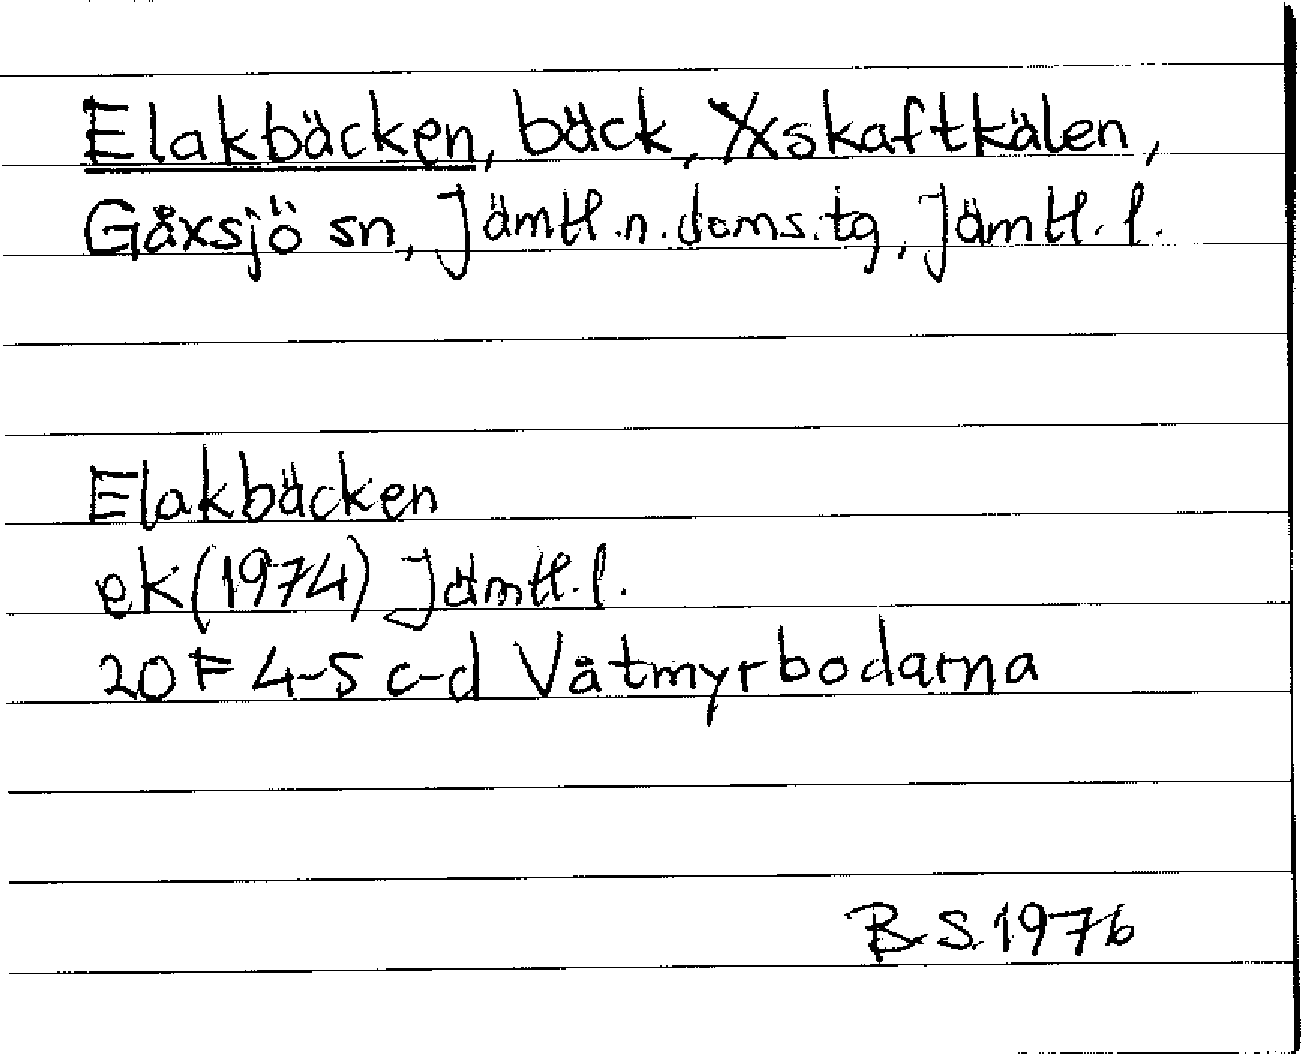 Elakbäcken, bäck, Yxskaftkälen,
Gåxsjö sn, Jämtl.n.doms.tg, Jämtl.l.
Elakbäcken
ek(1974) Jämtl.l.
20F 4-5 c-d Våtmyrbodarna
B.S.1976